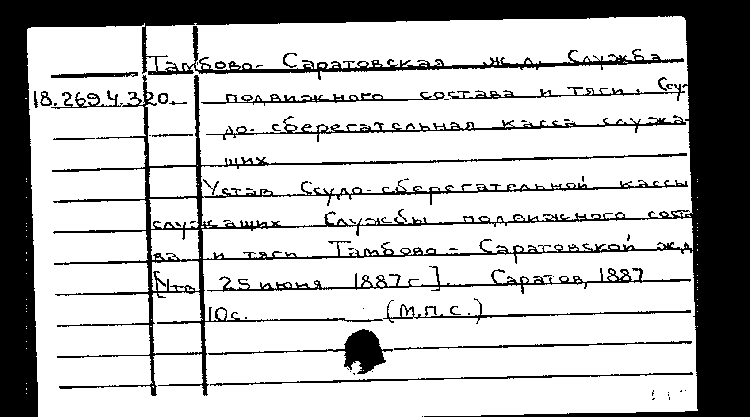 Тамбово-Саратовская ж.д. Служба
18.269.4.320. подвижного состава и тяги. Ссу-
до-сберегательная касса служа-
щих
Устав Ссудо-сберегательной кассы
служащих Службы подвижного соста
ва и тяги Тамбово-Саратовской ж.д
[Утв 25 июня 1887 г]. Саратов, 1887
10с. (М.П.С.)